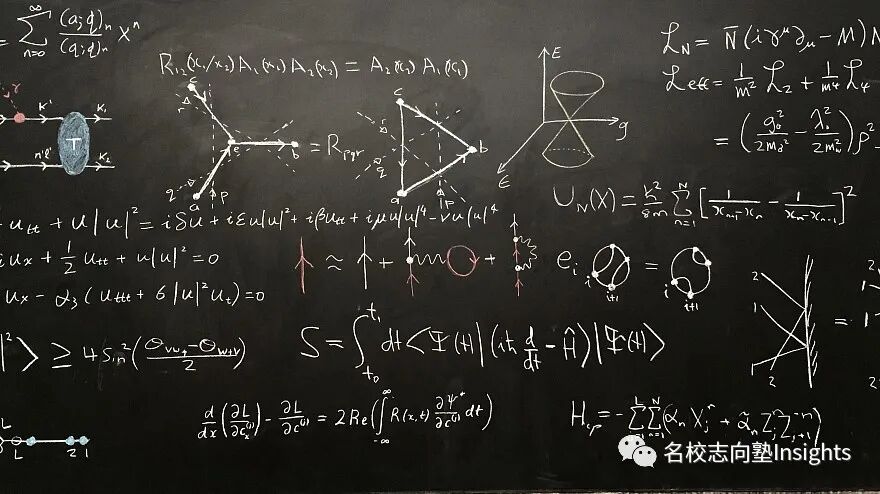 = ∑_{n=0}^{∞} (a;q)_n / (q;q)_n x^n
R₁₂(x₁/x₂) A₁(x₁) A₂(x₂) = A₂(x₂) A₁(x₁)
L_N = N̄(iγ^μ ∂_μ - M)N
L_eff = 1/m² L₂ + 1/m⁴ L₄
= (g₀²/2m_σ² - λ₀²/2m_ω²) ρ²
K' K₁
T
n'l' K₂
r c r
e b
a p q
= R_pqr
c b a
r q p
E
g
ε
U_N(X) = ħ²/8m ∑_{n=1}^{N} [1/(x_{n+1}-x_n) - 1/(x_n-x_{n-1})]²
u_tt + u|u|² = iδu + iεu|u|² + iβu_tt + iμu|u|⁴ - νu|u|⁴
iu_x + 1/2 u_tt + u|u|² = 0
≈ + +
e_i i i+1 = i i+1
u_x - α₃(u_ttt + 6|u|²u_t) = 0
2 1 1 2 =
|²⟩ ≥ 4 Sin²((θ_{vw} - θ_{w+v})/2)
S = ∫_{t₀}^{t₁} dt ⟨Ψ(t)|(iħ d/dt - Ĥ)|Ψ(t)⟩
d/dx(∂L/∂c_x^{(j)}) - ∂L/∂c^{(j)} = 2Re(∫_{-∞}^{∞} R(x,t) ∂ψ*/∂c^{(j)} dt)
L L 2 1
H_cp = -∑_{j=1}^{L} ∑_{n=1}^{N} (α_n X_j^n + α̃_n Z_j^n Z_{j+1}^{-n})
名校志向塾Insights